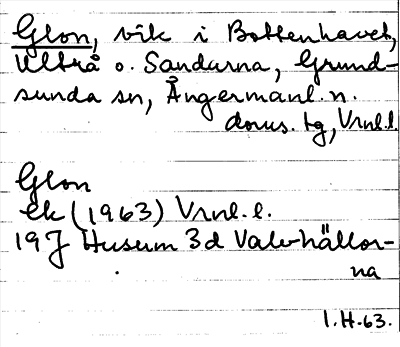 Glon, vik i Bottenhavet,
Ultrå o. Sandarna, Grund-
sunda sn, Ångermanl. n.
doms. tg, Vrnl.l.
Glon
ek (1963) Vrnl.l.
19J Husum 3d Valvhällor-
na
I.H.63.